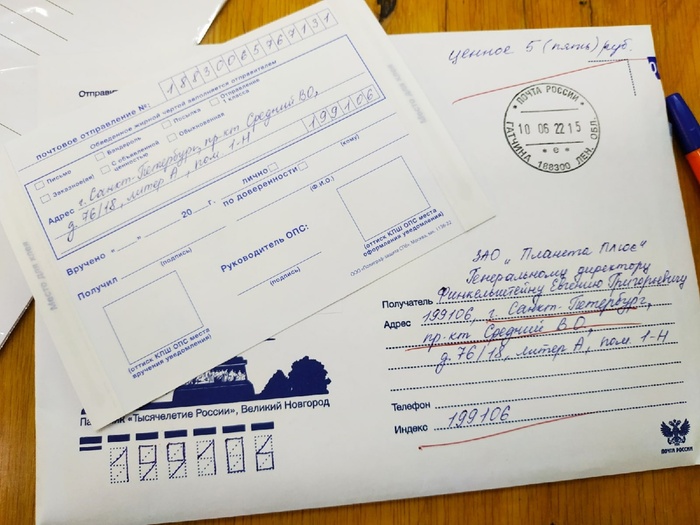 Отправи
ПОЧТОВОЕ ОТПРАВЛЕНИЕ №:
18830065767131
Обведенное жирной чертой заполняется отправителем
Письмо
Бандероль
Посылка
Отправление 1 класса
Заказное(ая)
С объявленной ценностью
Обыкновенная
Адрес г. Санкт-Петербург, пр-кт Средний ВО,
д. 76/18, литер А, пом. 1-Н
199106
(кому)
Вручено « » 20 г.
ЛИЧНО
ПО ДОВЕРЕННОСТИ
(Ф.И.О.)
Получил
(подпись)
Руководитель ОПС:
(подпись)
(оттиск КПШ ОПС места вручения уведомления)
(оттиск КПШ ОПС места оформления уведомления)
Место для клея
ценное 5 (пять) руб.
ПОЧТА РОССИИ
10 06 22 15
• е •
ГАТЧИНА 188300 ЛЕН. ОБЛ.
ЗАО „Планета Плюс"
Генеральному директору
Получатель Финкельштейну Евгению Григорьевичу
Адрес 199106, г. Санкт-Петербург,
пр-кт Средний ВО,
д. 76/18, литер А, пом. 1-Н
Телефон
Индекс 199106
"Тысячелетие России", Великий Новгород
199106
ПОЧТА РОССИИ